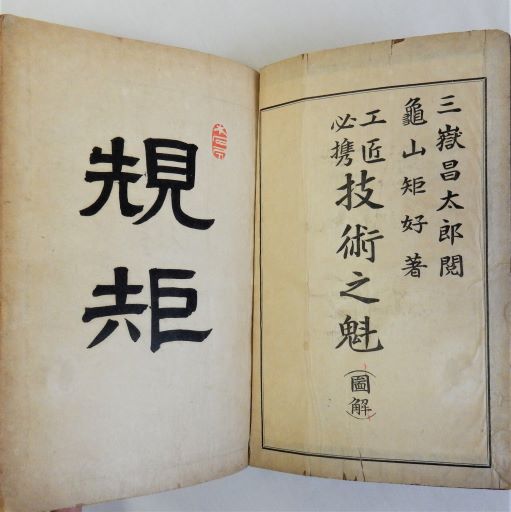 三嶽昌太郎閲
龜山矩好著
工匠
必携
技術之魁
(圖解)
規矩